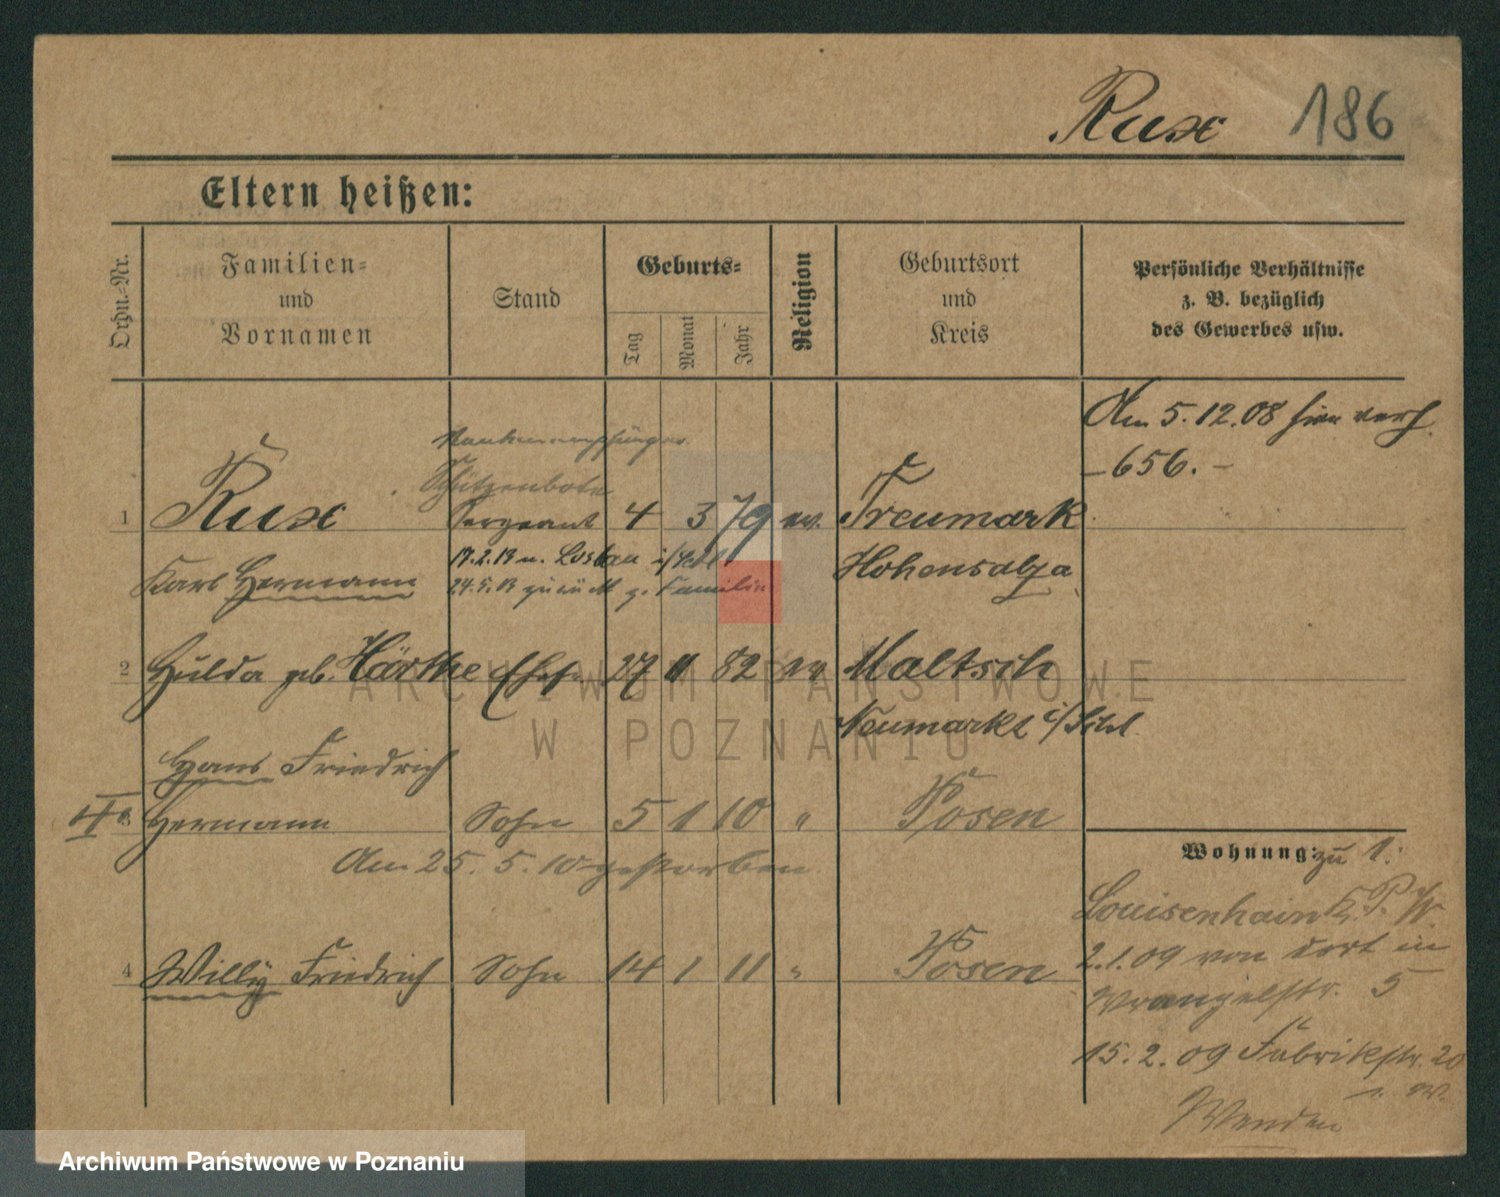 Rux 186
Eltern heißen:
Ordn.-Nr.
Familien-
und
Vornamen
Stand
Geburts-
Tag
Monat
Jahr
Religion
Geburtsort
und
Kreis
Persönliche Verhältnisse
z. B. bezüglich
des Gewerbes usw.
Am 5.12.08 hier verh.
-656.-
Schützenbote
1 Rux Sergeant 4 3 79 ev. Treumark
17.2.13 n.
Karl Hermann Hohensalza
24.5.13 zurück z. Familie
2 Hulda geb. Härthe Ehefr. 27 11 82 ev Maltsch
Neumarkt i/Schl.
Hans Friedrich
3 Hermann Sohn 5 1 10 " Posen
Am 25. 5. 10 gestorben.
4 Willy Friedrich Sohn 14 1 11 " Posen
Wohnung: zu 1.
Louisenhain K. P. W.
2.1.09 von dort in
Wrangelstr. 5
15.2.09 Fabrikstr. 20
Wenden
ARCHIWUM PAŃSTWOWE
W POZNANIU
Archiwum Państwowe w Poznaniu